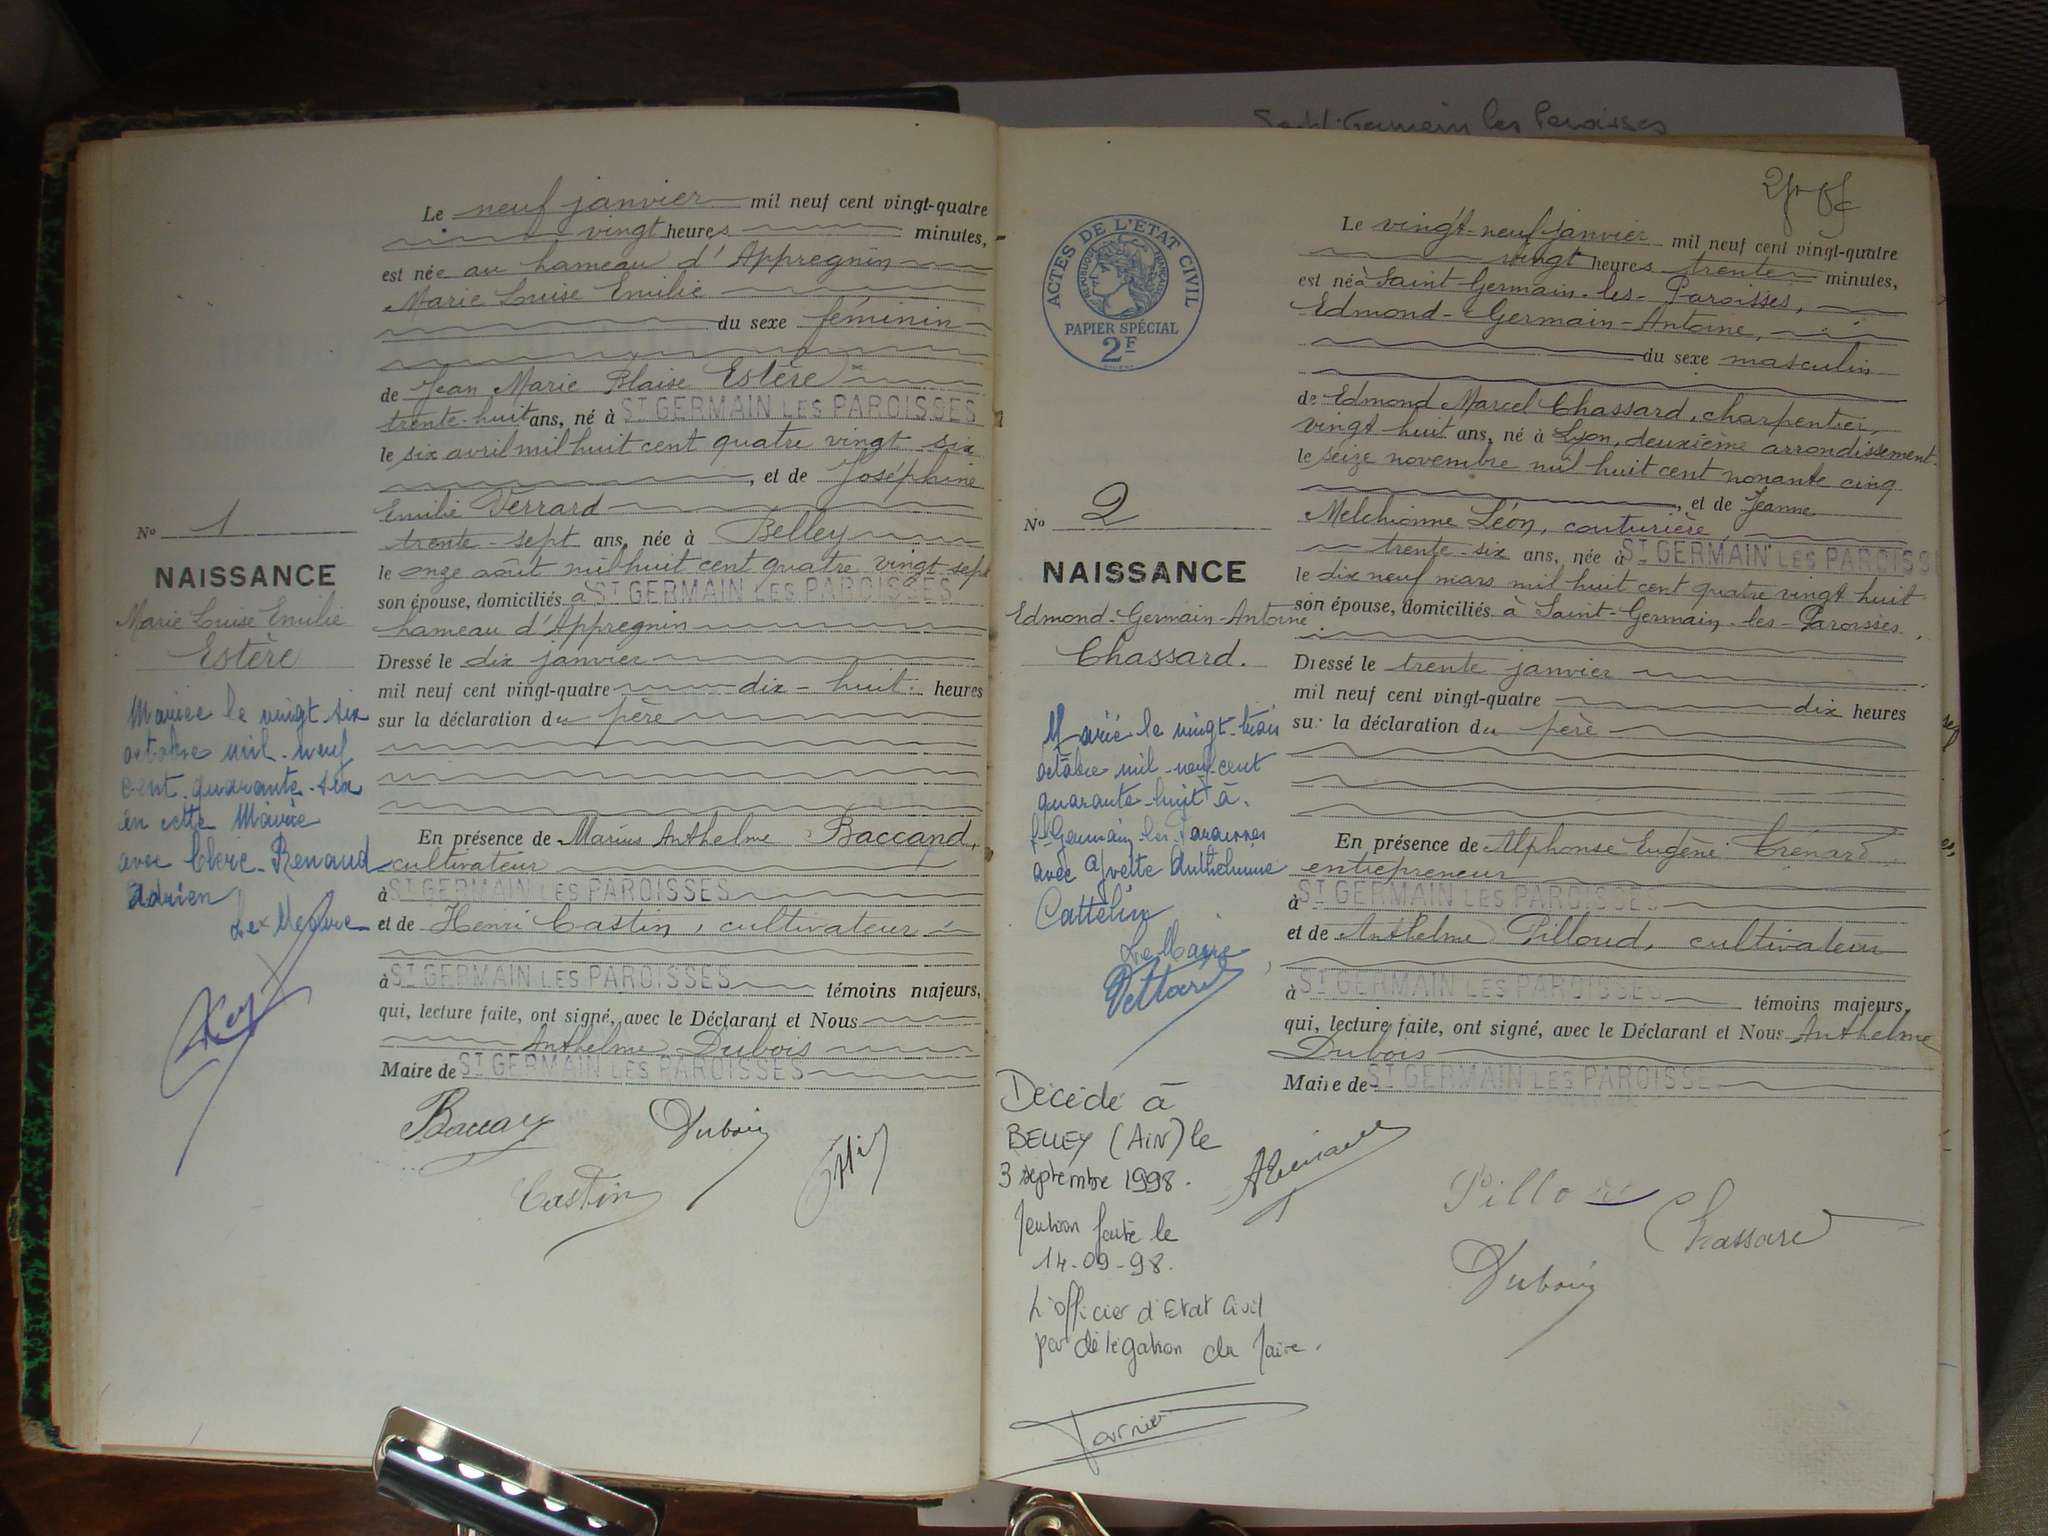 Saint Germain les Paroisses
Le neuf janvier mil neuf cent vingt-quatre
vingt heures minutes,
est née au hameau d'Appregnin
Marie Louise Emilie
du sexe féminin
de Jean Marie Blaise Estère
trente-huit ans, né à ST GERMAIN LES PAROISSES
le six avril mil huit cent quatre vingt six
, et de Joséphine
Emilie Verrard
trente-sept ans, née à Belley
le onze août mil huit cent quatre vingt sept
son épouse, domiciliés à ST GERMAIN LES PAROISSES
hameau d'Appregnin
Dressé le dix janvier
mil neuf cent vingt-quatre dix-huit heures
sur la déclaration du père
En présence de Marius Anthelme Baccand,
cultivateur
à ST GERMAIN LES PAROISSES
et de Henri Castin, cultivateur
à ST GERMAIN LES PAROISSES témoins majeurs,
qui, lecture faite, ont signé, avec le Déclarant et Nous
Anthelme Dubois
Maire de ST GERMAIN LES PAROISSES
Dubois
Castin
No 1
NAISSANCE
Marie Louise Emilie
Estère
Mariée le vingt-six
octobre mil-neuf
cent-quarante-six
en cette Mairie
avec Clerc-Renaud
Adrien
Le Maire
ACTES DE L'ÉTAT CIVIL
RÉPUBLIQUE FRANÇAISE
PAPIER SPÉCIAL
2F
Le vingt-neuf janvier mil neuf cent vingt-quatre
vingt heures trente minutes,
est né à Saint Germain-les-Paroisses,
Edmond-Germain-Antoine,
du sexe masculin
de Edmond Marcel Chassard, charpentier,
vingt huit ans, né à Lyon, deuxième arrondissement
le seize novembre mil huit cent nonante cinq
, et de Jeanne
Melchionne Léon, couturière,
trente-six ans, née à ST GERMAIN LES PAROISS
le dix neuf mars mil huit cent quatre vingt huit
son épouse, domiciliés à Saint-Germain-les-Paroisses,
Dressé le trente janvier
mil neuf cent vingt-quatre dix heures
sur la déclaration du père
En présence de Alphonse Eugène Trénard
entrepreneur
à ST GERMAIN LES PAROISSES
et de Anthelme Pilloud, cultivateur
à ST GERMAIN LES PAROISSES témoins majeurs,
qui, lecture faite, ont signé, avec le Déclarant et Nous Anthelme
Dubois
Maire de ST GERMAIN LES PAROISSE
Chassard
Dubois
No 2
NAISSANCE
Edmond-Germain-Antoine
Chassard.
Marié le vingt-trois
octobre mil-neuf-cent
quarante-huit à
St Germain-les-Paroisses
avec Yvette Anthelmine
Cattelin
Le Maire
Décédé à
BELLEY (AIN) le
3 septembre 1998.
Mention faite le
14-09-98.
L'officier d'Etat Civil
par délégation du Maire.